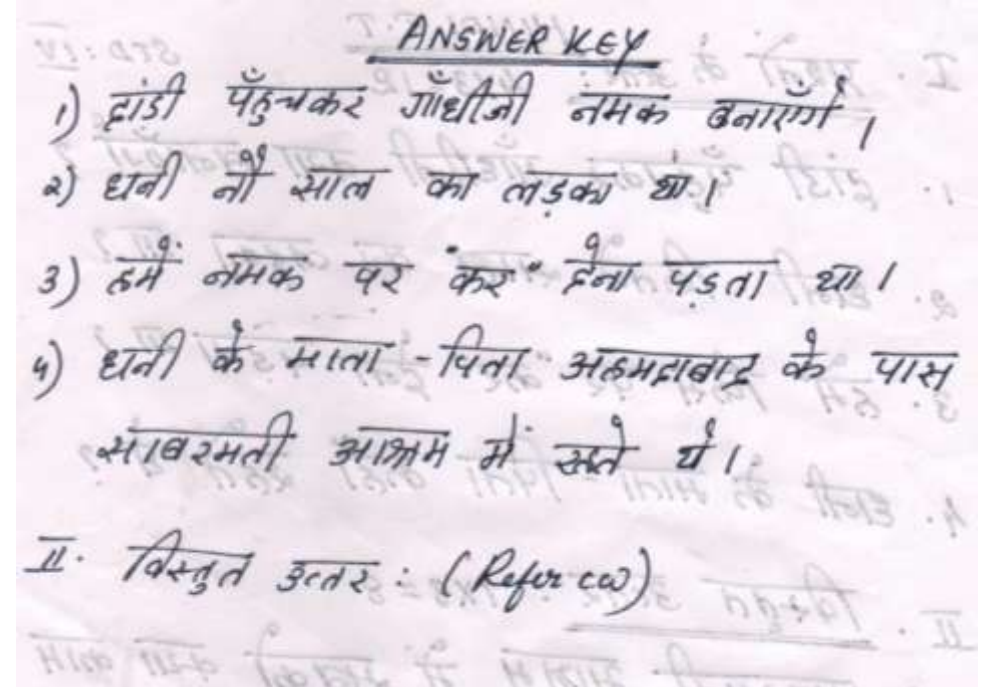 ANSWER KEY
1) दांडी पँहुचकर गाँधीजी नमक बनाएंगे ।
2) धनी नौ साल का लड़का था।
3) हमें नमक पर "कर" देना पड़ता था ।
4) धनी के माता - पिता अहमदाबाद के पास
साबरमती आश्रम में रहते थे ।
II. विस्तृत उत्तर : (Refer cw)